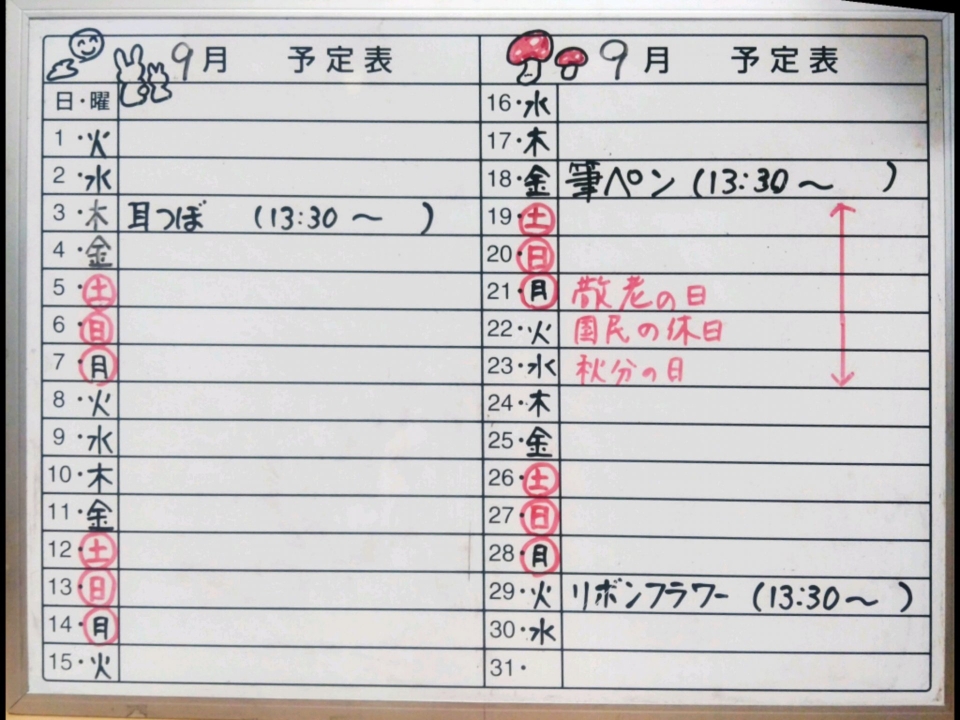 9月 予定表
日・曜
1・火
2・水
3・木 耳つぼ (13:30 〜 )
4・金
5・土
6・日
7・月
8・火
9・水
10・木
11・金
12・土
13・日
14・月
15・火
9月 予定表
16・水
17・木
18・金 筆ペン (13:30 〜 )
19・土
20・日
21・月 敬老の日
22・火 国民の休日
23・水 秋分の日
24・木
25・金
26・土
27・日
28・月
29・火 リボンフラワー (13:30〜 )
30・水
31・